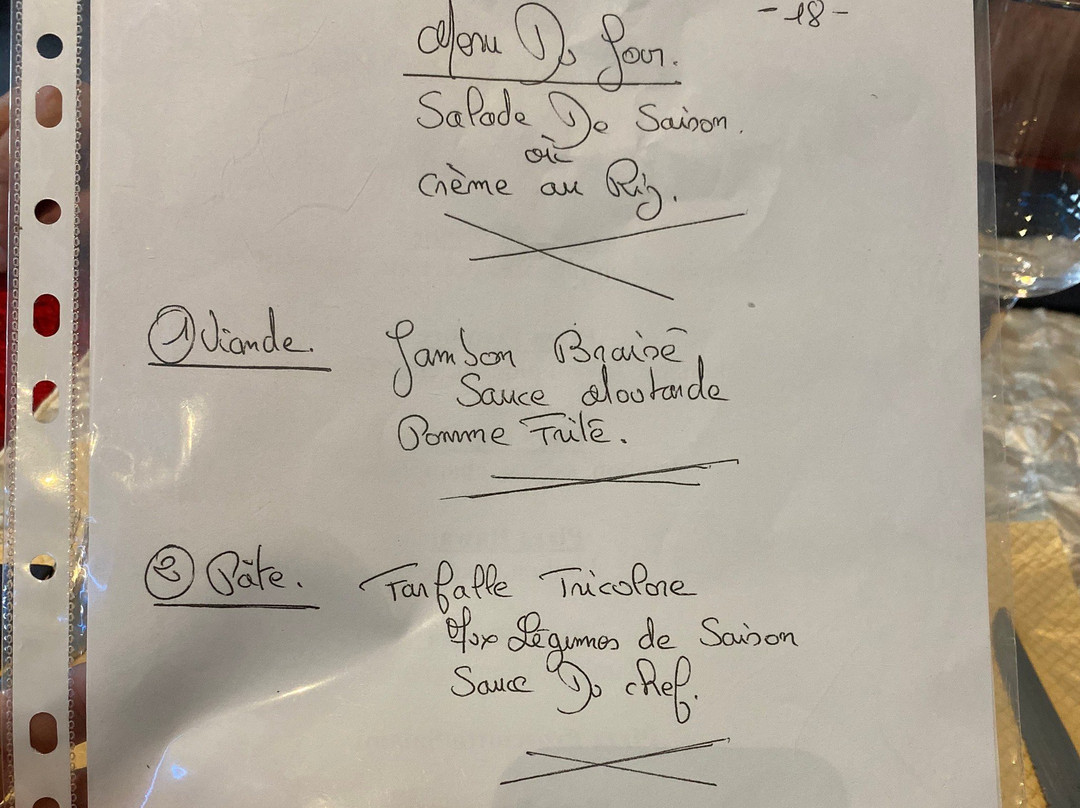 -18-
Menu Du Jour.
Salade De Saison.
où
Crème au Riz.
① Viande.
Jambon Braisé
Sauce Moutarde
Pomme Frite.
② Pâte.
Farfalle Tricolore
Aux Légumes de Saison
Sauce Du Chef.